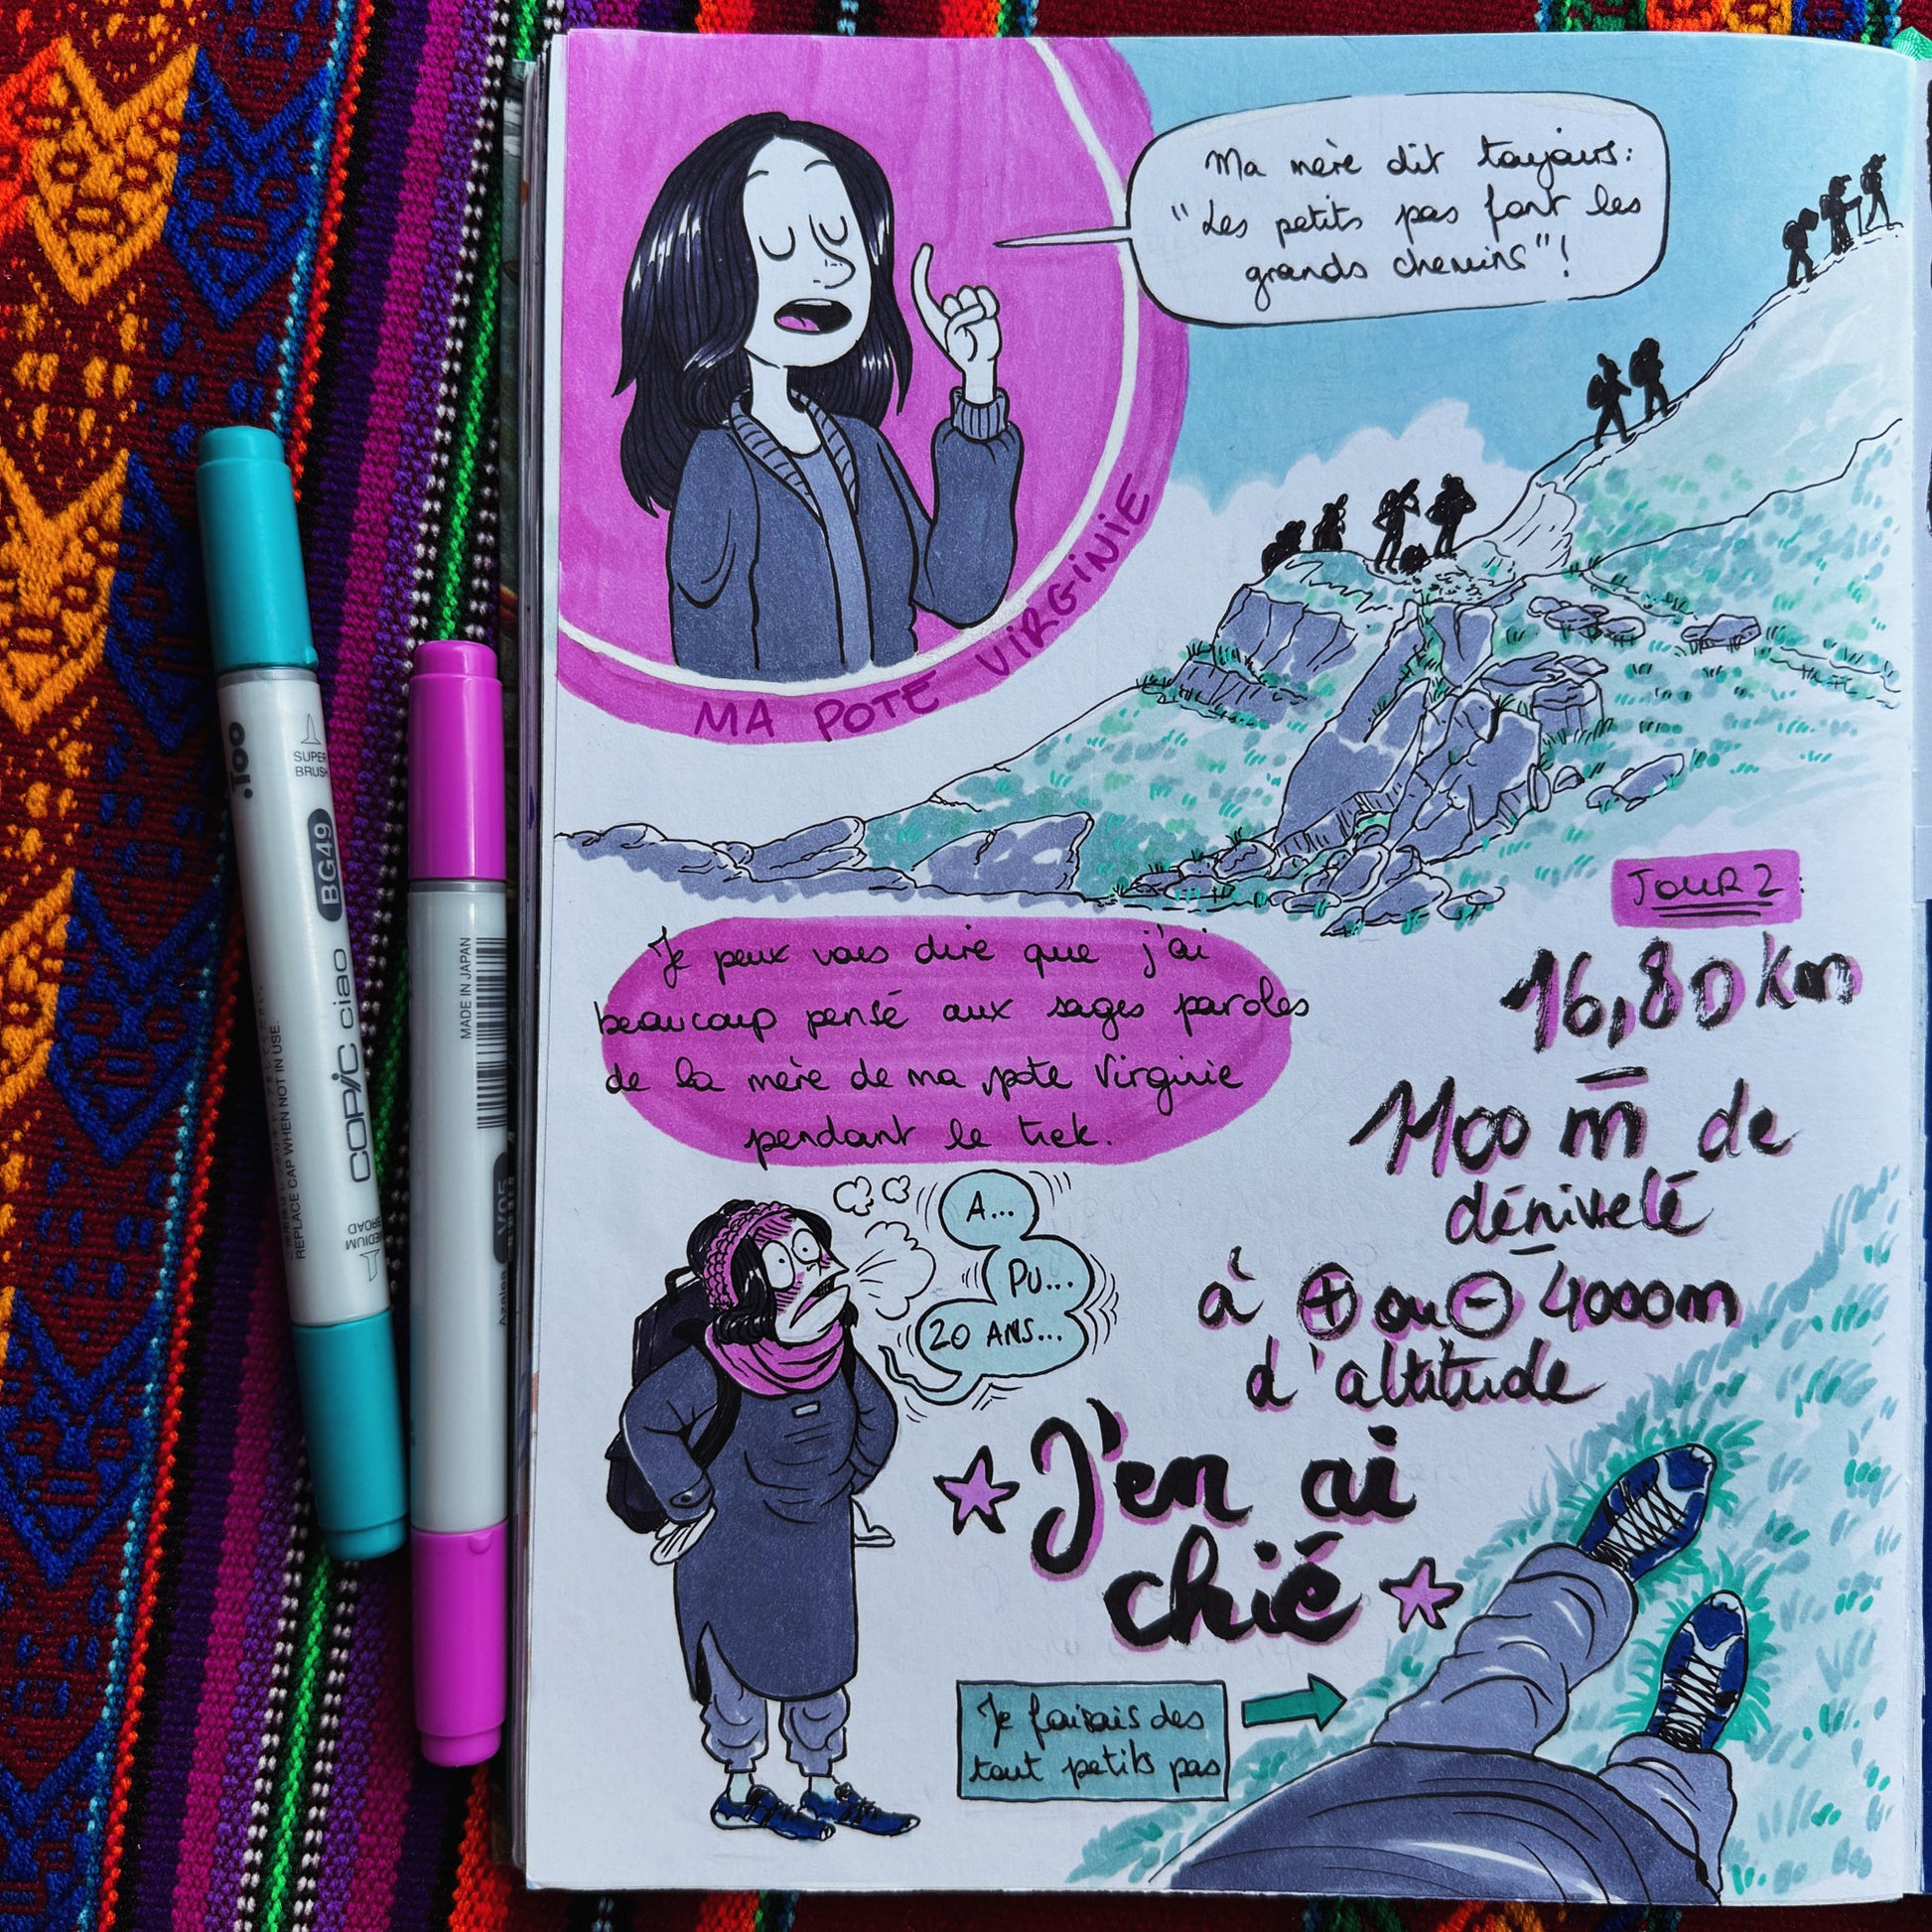 Ma mère dit toujours:
"Les petits pas font les
grands chemins"!
MA POTE VIRGINIE
JOUR 2:
16,80 km
1100 m de
dénivelé
à + ou - 4000m
d'altitude
Je peux vous dire que j'ai
beaucoup pensé aux sages paroles
de la mère de ma pote Virginie
pendant le trek.
A...
PU...
20 ANS...
J'en ai
chié
Je faisais des
tout petits pas
.Too
SUPER
BRUSH
BG49
COPIC ciao
REPLACE CAP WHEN NOT IN USE.
MEDIUM
BROAD
MADE IN JAPAN
Azalea